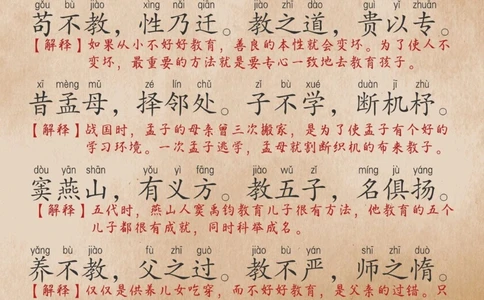 gǒu bù jiào xìng nǎi qiān jiào zhī dào guì yǐ zhuān
苟不教，性乃迁。教之道，贵以专。
【解释】如果从小不好好教育，善良的本性就会变坏。为了使人不
变坏，最重要的方法就是要专心一致地去教育孩子。
xī mèng mǔ zé lín chǔ zǐ bù xué duàn jī zhù
昔孟母，择邻处。子不学，断机杼。
【解释】战国时，孟子的母亲曾三次搬家，是为了使孟子有个好的
学习环境。一次孟子逃学，孟母就割断织机的布来教子。
dòu yān shān yǒu yì fāng jiào wǔ zǐ míng jù yáng
窦燕山，有义方。教五子，名俱扬。
【解释】五代时，燕山人窦禹钧教育儿子很有方法，他教育的五个
儿子都很有成就，同时科举成名。
yǎng bù jiào fù zhī guò jiào bù yán shī zhī duò
养不教，父之过。教不严，师之惰。
【解释】仅仅是供养儿女吃穿，而不好好教育，是父亲的过错。只